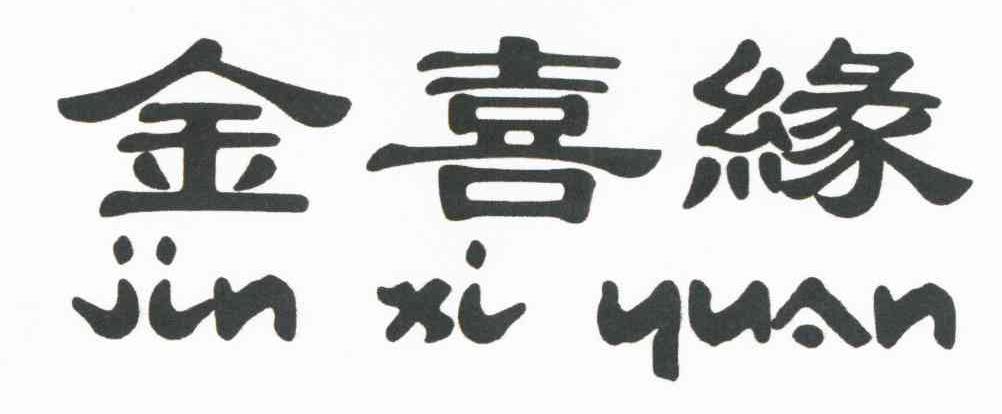 金喜緣
jin xi yuan